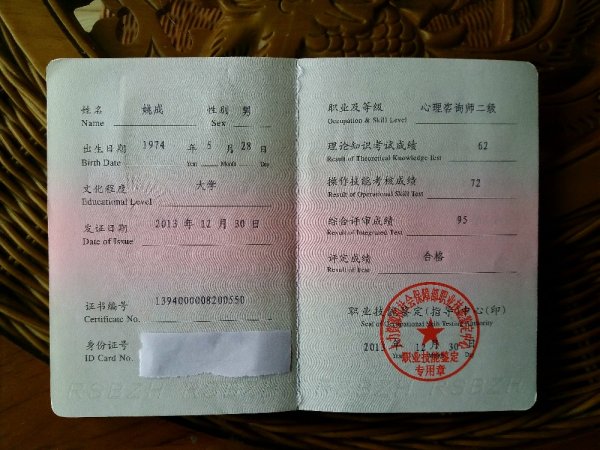 姓名 姚成 性别 男
Name Sex
出生日期 1974 年 5 月 28 日
Birth Date Year Month Day
文化程度 大学
Educational Level
发证日期 2013 年 12 月 30 日
Date of Issue
证书编号 1394000008200550
Certificate No.
身份证号
ID Card No.
RSBZH RSBZH
职业及等级 心理咨询师二级
Occupation & Skill Level
理论知识考试成绩 62
Result of Theoretical Knowledge Test
操作技能考核成绩 72
Result of Operational Skill Test
综合评审成绩 95
Result of Integrated Test
评定成绩 合格
Result of Test
职业技能鉴定(指导)中心(印)
Seal of Occupational Skill Testing Authority
2013 年 12 月 30 日
社会保障部职业技能鉴定中心
职业技能鉴定
专用章
RSBZH RSBZH